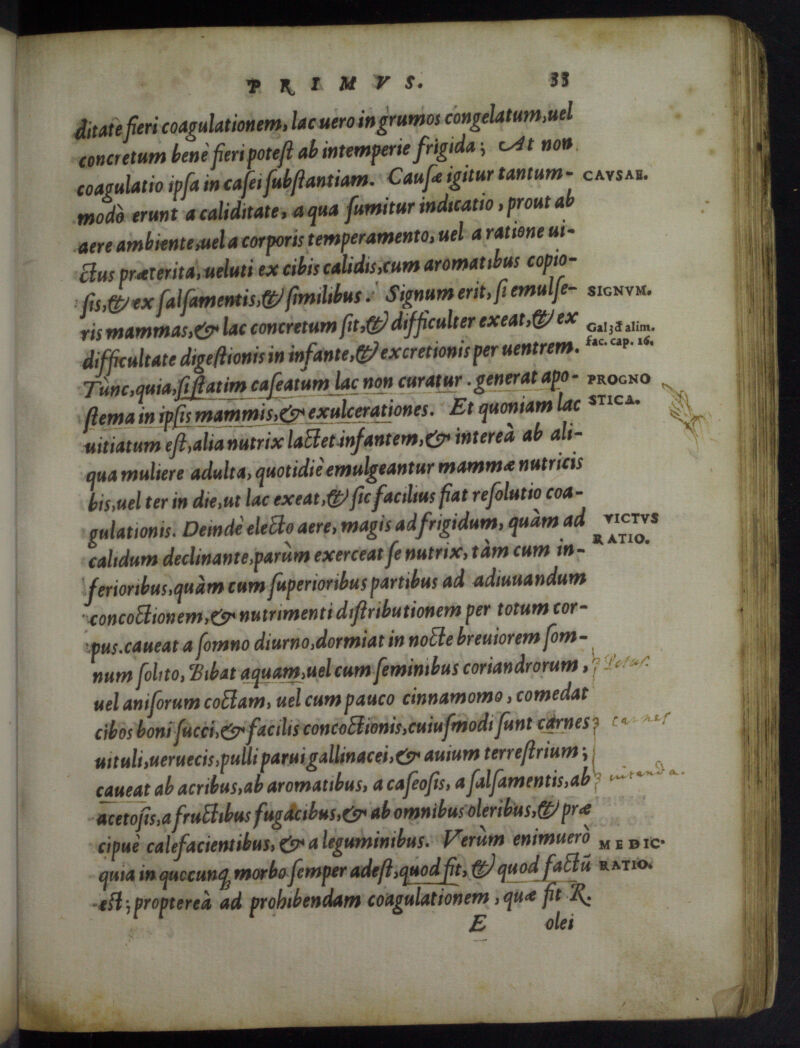 PRIMVS. 33
ditate fieri coagulationem, lac uero in grumos congelatum, uel
concretum benè fieri potest ab intemperie frigida; At non
coagulatio ipsa in casei substantiam. Causæ igitur tantum- CAVSAE.
modò erunt a caliditate, a qua sumitur indicatio, prout ab
aere ambiente, uel a corporis temperamento, uel a ratione ui-
ctus præterita, ueluti ex cibis calidis, cum aromatibus copio-
sis, & ex salsamentis, & similibus. Signum erit, si emulse- SIGNVM.
ris mammas, & lac concretum sit, & difficulter exeat, & ex Gal. 3 d alim.
difficultate digestionis in infante, & excretionis per uentrem. fac. cap. 16.
Tunc, quia, si statim caseatum lac non curatur. generat apo- PROGNO
stema in ipsis mammis, & exulcerationes. Et quoniam lac STICA.
uitiatum est, alia nutrix lactet infantem, & intereà ab ali-
qua muliere adulta, quotidiè emulgeantur mammæ nutricis
bis, uel ter in die, ut lac exeat, & sic facilius fiat resolutio coa-
gulationis. Deindè electo aere, magis ad frigidum, quàm ad VICTVS
calidum declinante, parùm exerceat se nutrix, tàm cum in- RATIO.
ferioribus, quàm cum superioribus partibus ad adiuuandum
concoctionem, & nutrimenti distributionem per totum cor-
pus. caueat a somno diurno, dormiat in nocte breuiorem som-
num solito, Bibat aquam, uel cum seminibus coriandrorum, Potus.
uel anisorum coctam, uel cum pauco cinnamomo, comedat
cibos boni succi, & facilis concoctionis, cuiusmodi sunt carnes carnes
uituli, ueruecis, pulli parui gallinacei, & auium terrestrium;
caueat ab acribus, ab aromatibus, a caseosis, a salsamentis, ab uitanda.
acetosis, a fructibus fugacibus, & ab omnibus oleribus, & præ
cipuè calefacientibus, & a leguminibus. Verùm enimuerò MEDIC.
quia in quocunq; morbo semper adest, quod fit, & quod factũ RATIO.
est; proptereà ad prohibendam coagulationem, quæ fit ℞.
E olei